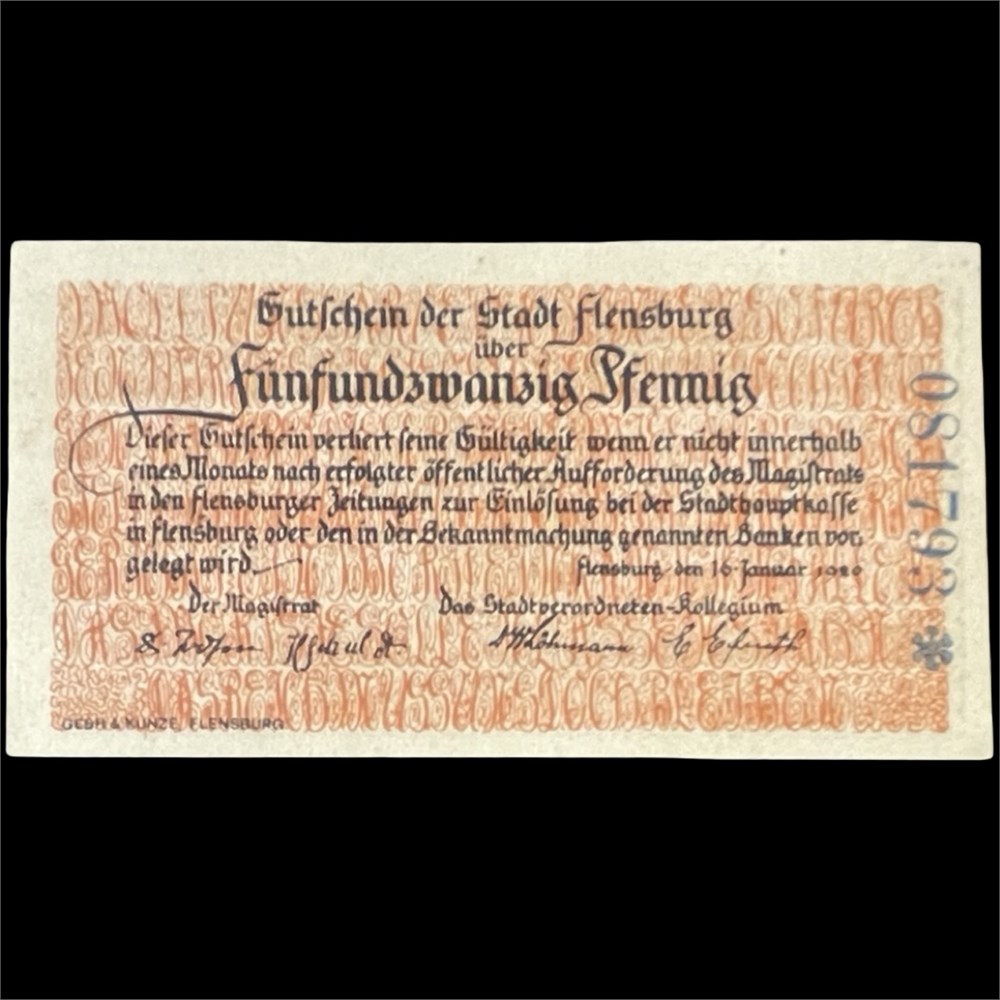 Gutſchein der Stadt Flensburg
über
Fünfundzwanzig Pfennig
Dieſer Gutſchein verliert ſeine Gültigkeit wenn er nicht innerhalb
eines Monats nach erfolgter öffentlicher Aufforderung des Magiſtrats
in den Flensburger Zeitungen zur Einlöſung bei der Stadthauptkaſſe
in Flensburg oder den in der Bekanntmachung genannten Banken vor,
gelegt wird.
Flensburg, den 16. Januar 1920
Der Magiſtrat
Das Stadtverordneten-Kollegium
KUNZE, FLENSBURG
081793